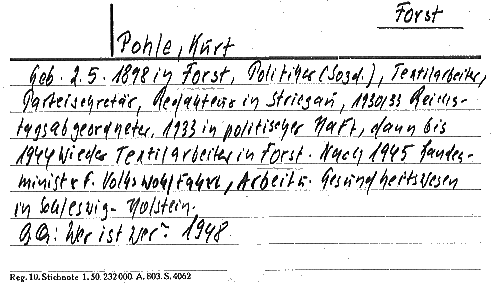 Forst
Pohle, Kurt
Geb. 2.5. 1898 in Forst, Politiker (Sozd.), Textilarbeiter,
Parteisekretär, Redakteur in Striegau, 1930/33 Reichs-
tagsabgeordneter, 1933 in politischer Haft, dann bis
1944 wieder Textilarbeiter in Forst. Nach 1945 Landes-
minister f. Volkswohlfahrt, Arbeit u. Gesundheitswesen
in Schleswig-Holstein.
Qu: Wer ist wer. 1948.
Reg. 10. Stichnote 1. 50. 232000. A. 803. S. 4062